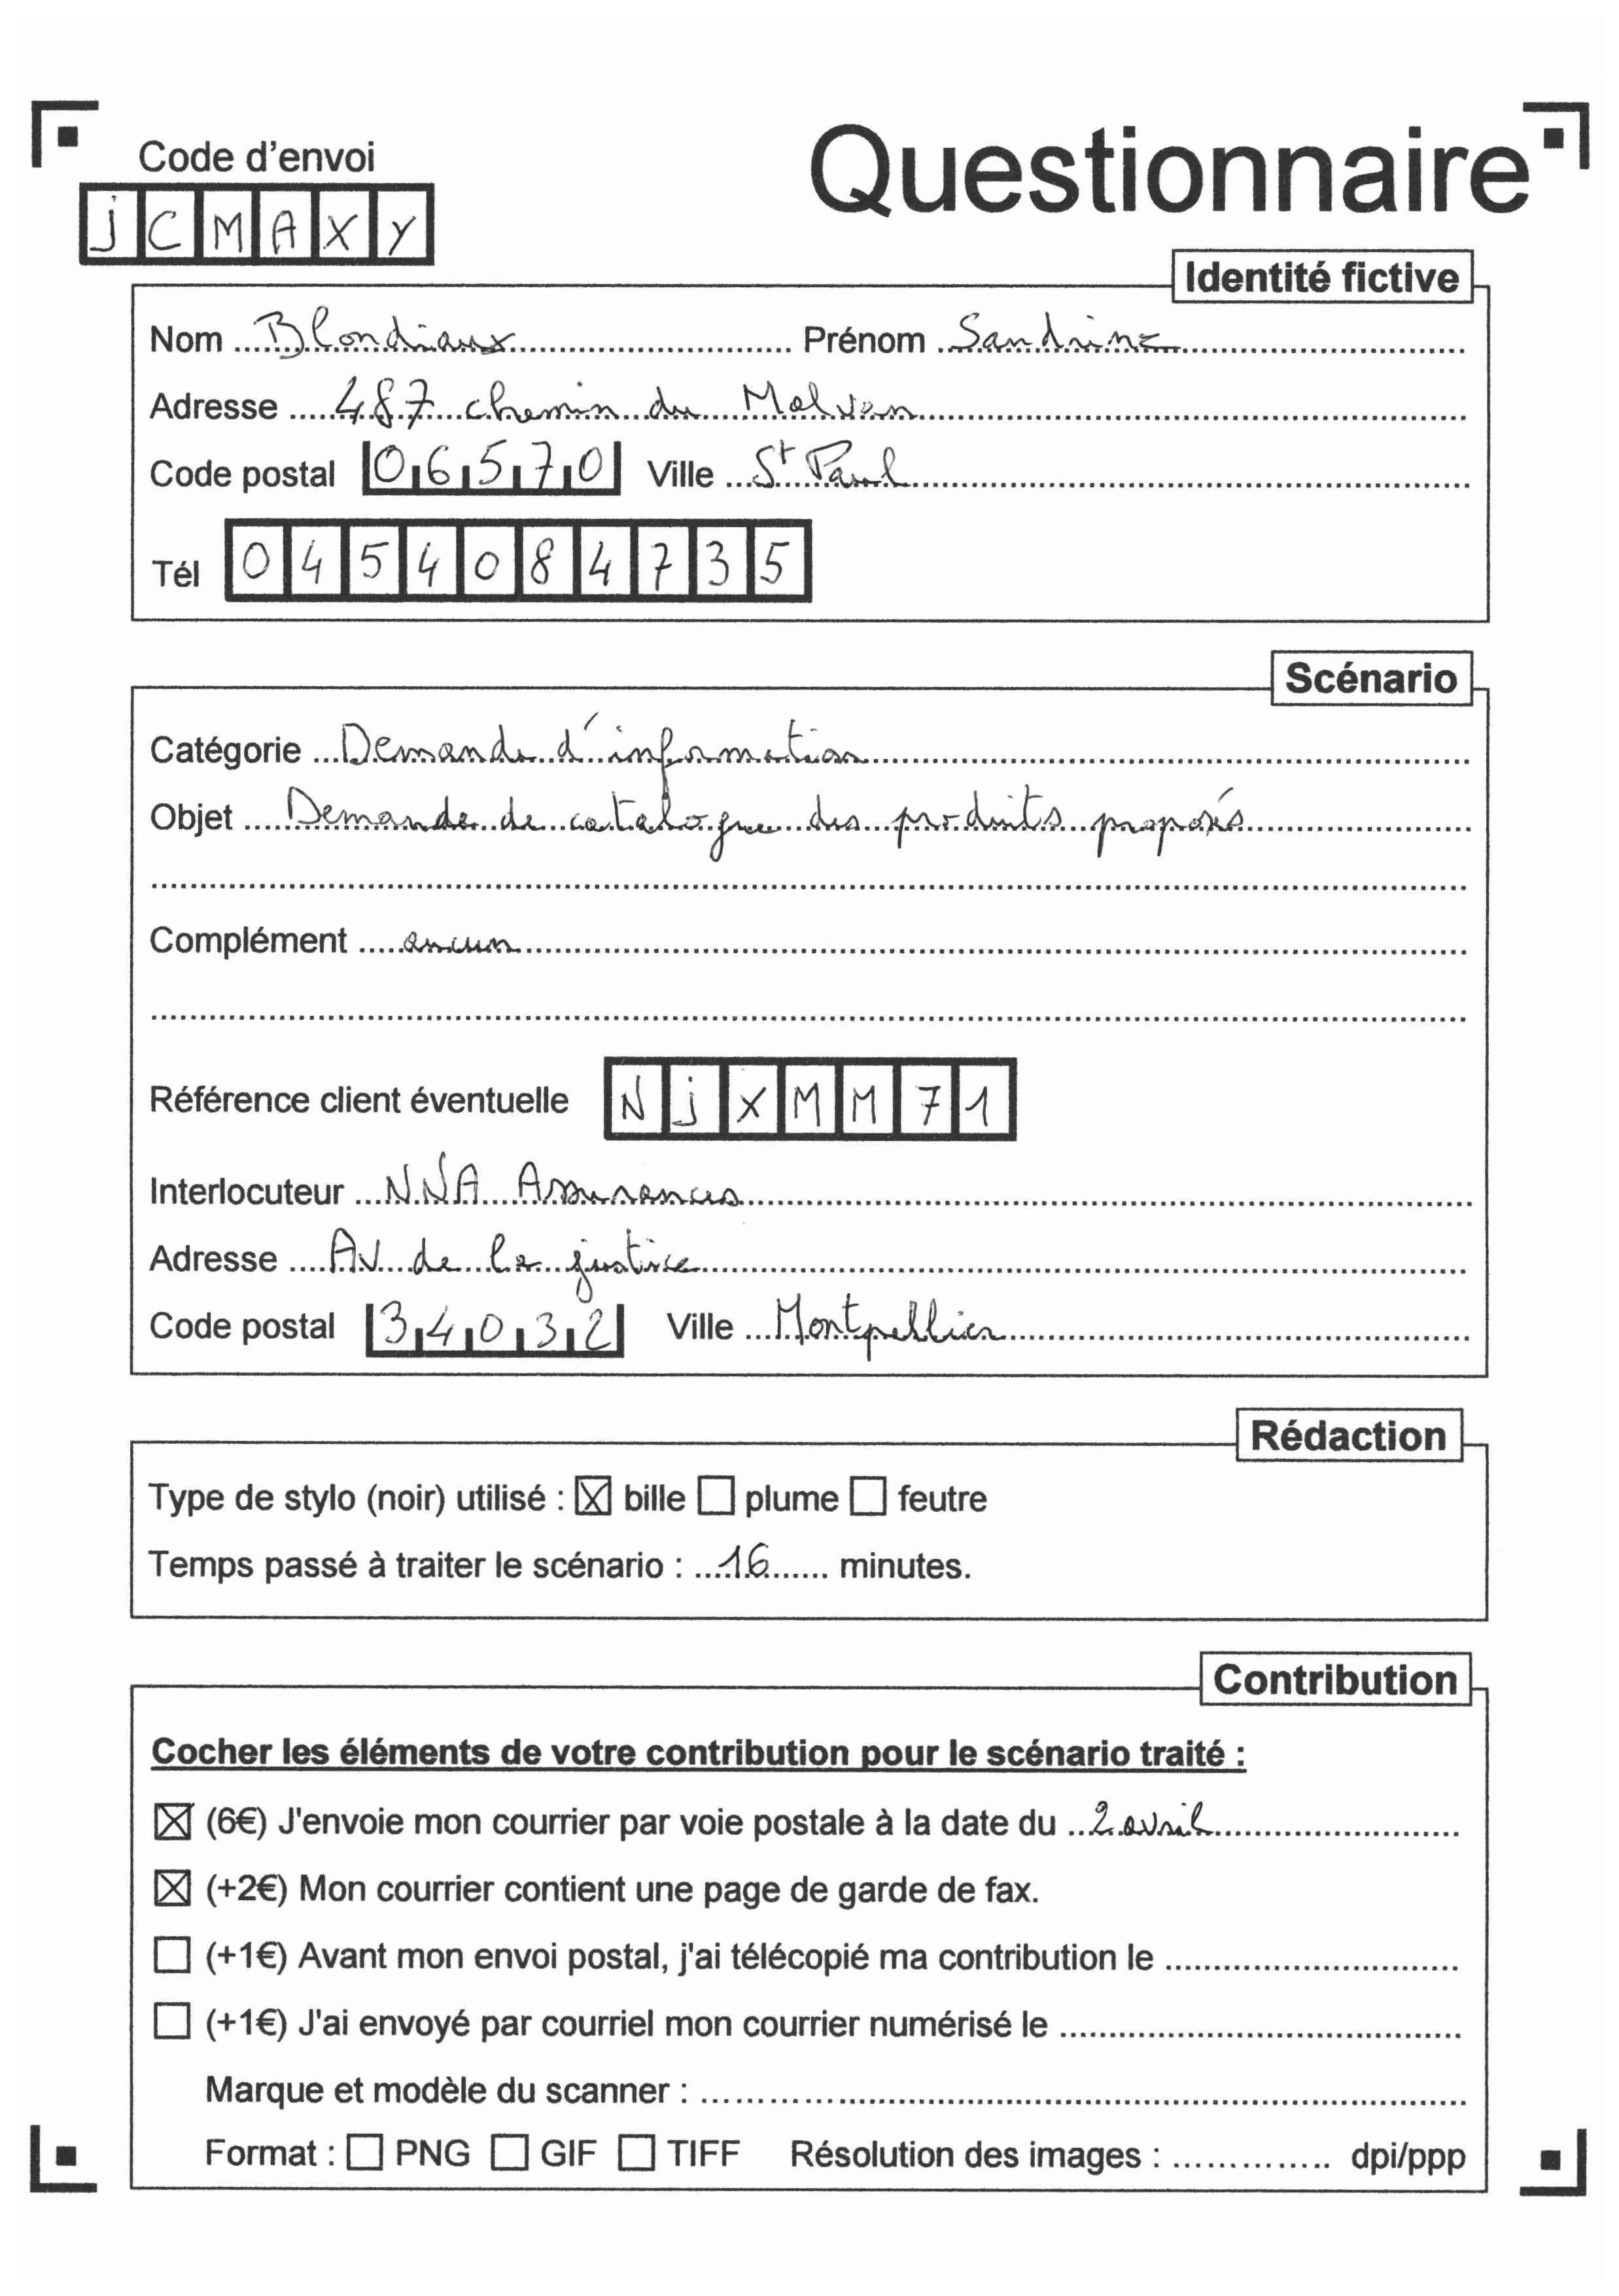 Code d'envoi
Questionnaire
jCMAXY
Identité fictive
Nom Blondiaux Prénom Sandrine
Adresse 487 chemin du Malvan
Code postal 06570 Ville St Paul
Tél 0454084735
Scénario
Catégorie Demande d'information
Objet Demande de catalogue des produits proposés
Complément aucun
Référence client éventuelle NjXMM71
Interlocuteur NNA Assurances
Adresse AV de la justice
Code postal 34032 Ville Montpellier
Rédaction
Type de stylo (noir) utilisé : ☒ bille ☐ plume ☐ feutre
Temps passé à traiter le scénario : 16 minutes.
Contribution
Cocher les éléments de votre contribution pour le scénario traité :
☒ (6€) J'envoie mon courrier par voie postale à la date du 2 avril
☒ (+2€) Mon courrier contient une page de garde de fax.
☐ (+1€) Avant mon envoi postal, j'ai télécopié ma contribution le
☐ (+1€) J'ai envoyé par courriel mon courrier numérisé le
Marque et modèle du scanner :
Format : ☐ PNG ☐ GIF ☐ TIFF Résolution des images : dpi/ppp